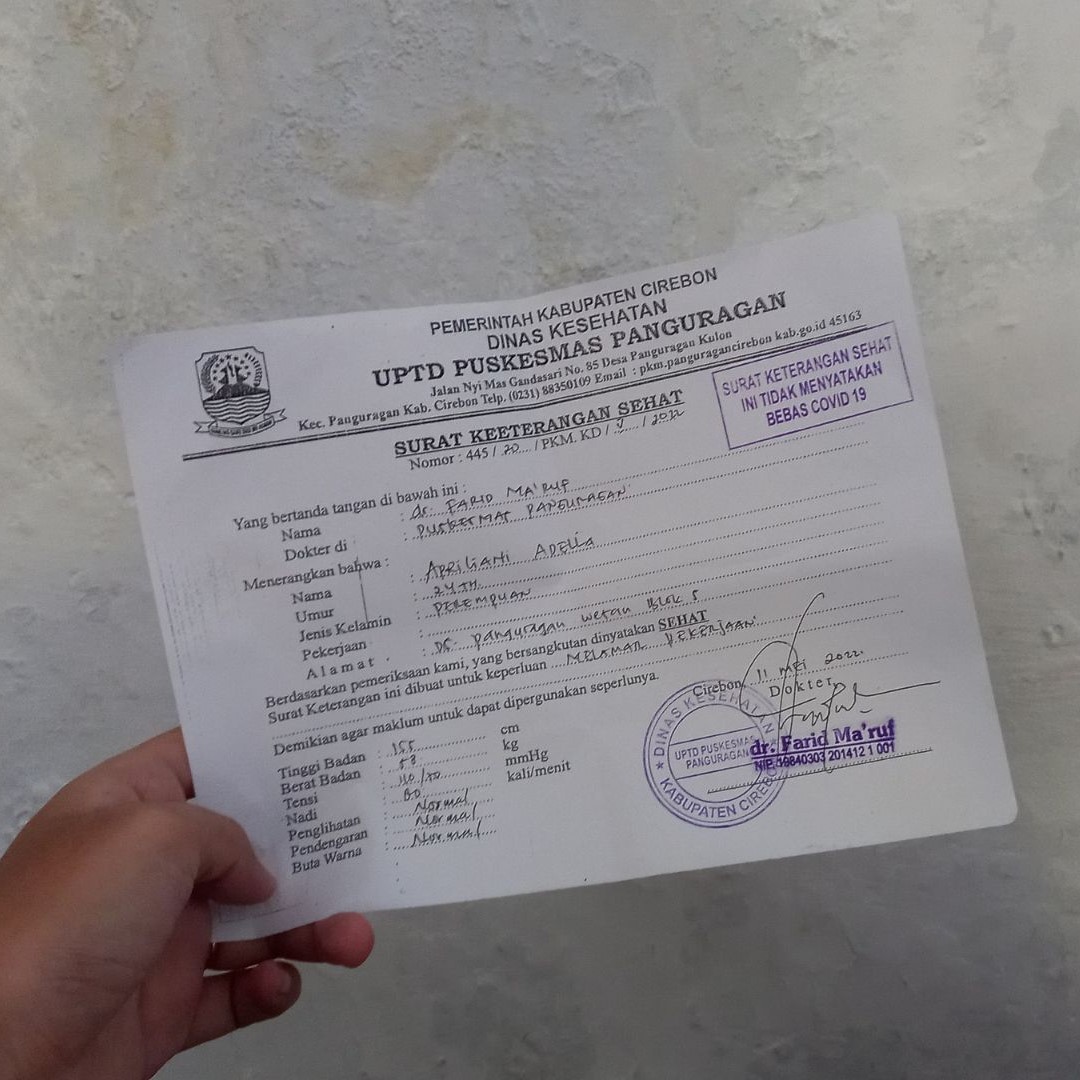 PEMERINTAH KABUPATEN CIREBON
DINAS KESEHATAN
UPTD PUSKESMAS PANGURAGAN
Jalan Nyi Mas Gandasari No. 85 Desa Panguragan Kulon
Kec. Panguragan Kab. Cirebon Telp. (0231) 88350109 Email : pkm.panguragancirebon kab.go.id 45163
SURAT KETERANGAN SEHAT
INI TIDAK MENYATAKAN
BEBAS COVID 19
SURAT KEETERANGAN SEHAT
Nomor : 445 / 20 / PKM. KD / V / 2022
Yang bertanda tangan di bawah ini :
Nama : dr. FARID MA'RUF
Dokter di : PUSKESMAS PANGURAGAN
Menerangkan bahwa :
Nama : APRILIANI ADELIA
Umur : 24 TH
Jenis Kelamin : PEREMPUAN
Pekerjaan :
Alamat : DS. panguragan wetan Blok 5
Berdasarkan pemeriksaan kami, yang bersangkutan dinyatakan SEHAT
Surat Keterangan ini dibuat untuk keperluan MELAMAR PEKERJAAN
Demikian agar maklum untuk dapat dipergunakan seperlunya.
Cirebon, 11 MEI 2022
Dokter
Tinggi Badan : 155 cm
Berat Badan : 53 kg
Tensi : 110/70 mmHg
Nadi : 80 kali/menit
Penglihatan : Normal
Pendengaran : Normal
Buta Warna : Normal
DINAS KESEHATAN
UPTD PUSKESMAS
PANGURAGAN
KABUPATEN CIREBON
dr. Farid Ma'ruf
NIP. 19840303 201412 1 001